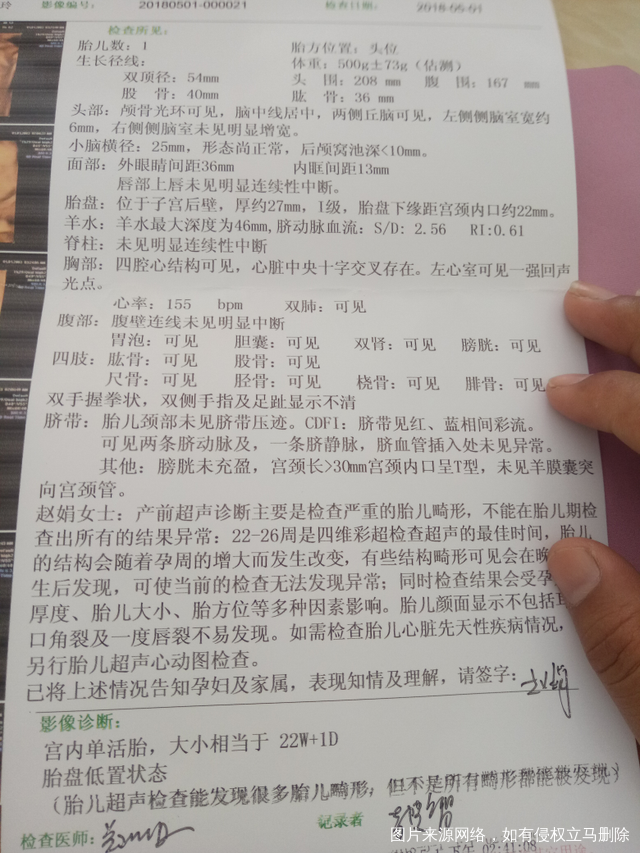 玲 影像编号: 20180501-000021 检查日期: 2018-05-01
检查所见:
胎儿数: 1 胎方位置: 头位
生长径线: 体重: 500g±73g(估测)
双顶径: 54mm 头 围: 208 mm 腹 围: 167 mm
股 骨: 40mm 肱 骨: 36 mm
头部: 颅骨光环可见, 脑中线居中, 两侧丘脑可见, 左侧侧脑室宽约
6mm, 右侧侧脑室未见明显增宽。
小脑横径: 25mm, 形态尚正常, 后颅窝池深<10mm。
面部: 外眼睛间距36mm 内眶间距13mm
唇部上唇未见明显连续性中断。
胎盘: 位于子宫后壁, 厚约27mm, I级, 胎盘下缘距宫颈内口约22mm。
羊水: 羊水最大深度为46mm, 脐动脉血流: S/D: 2.56 RI:0.61
脊柱: 未见明显连续性中断
胸部: 四腔心结构可见, 心脏中央十字交叉存在。左心室可见一强回声
光点。
心率: 155 bpm 双肺: 可见
腹部: 腹壁连线未见明显中断
胃泡: 可见 胆囊: 可见 双肾: 可见 膀胱: 可见
四肢: 肱骨: 可见 股骨: 可见
尺骨: 可见 胫骨: 可见 桡骨: 可见 腓骨: 可见
双手握拳状, 双侧手指及足趾显示不清
脐带: 胎儿颈部未见脐带压迹。CDFI: 脐带见红、蓝相间彩流。
可见两条脐动脉及, 一条脐静脉, 脐血管插入处未见异常。
其他: 膀胱未充盈, 宫颈长>30mm宫颈内口呈T型, 未见羊膜囊突
向宫颈管。
赵娟女士: 产前超声诊断主要是检查严重的胎儿畸形, 不能在胎儿期检
查出所有的结果异常: 22-26周是四维彩超检查超声的最佳时间, 胎儿
的结构会随着孕周的增大而发生改变, 有些结构畸形可见会在晚
生后发现, 可使当前的检查无法发现异常; 同时检查结果会受孕
厚度、胎儿大小、胎方位等多种因素影响。胎儿颜面显示不包括
口角裂及一度唇裂不易发现。如需检查胎儿心脏先天性疾病情况,
另行胎儿超声心动图检查。
已将上述情况告知孕妇及家属, 表现知情及理解, 请签字:
影像诊断:
宫内单活胎, 大小相当于 22W+1D
胎盘低置状态
(胎儿超声检查能发现很多胎儿畸形, 但不是所有畸形都能被发现)
检查医师: 记录者
图片来源网络,如有侵权立马删除
下午 02:41:08